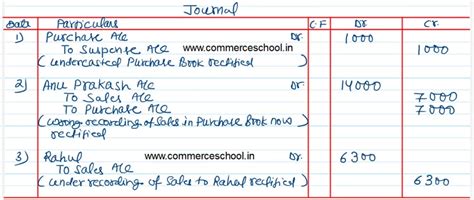 Journal
Date Particulars C.F Dr. Cr.
1) Purchase A/c Dr. 1000
To Suspense A/c www.commerceschool.in 1000
(undercasted Purchase Book rectified)
2) Anu Prakash A/c Dr. 14000
To Sales A/c 7000
To Purchase A/c 7000
(wrong recording of Sales in Purchase Book now
rectified
3) Rahul www.commerceschool.in Dr. 6300
To Sales A/c
(under recording of Sales to Rahul rectified) 6300